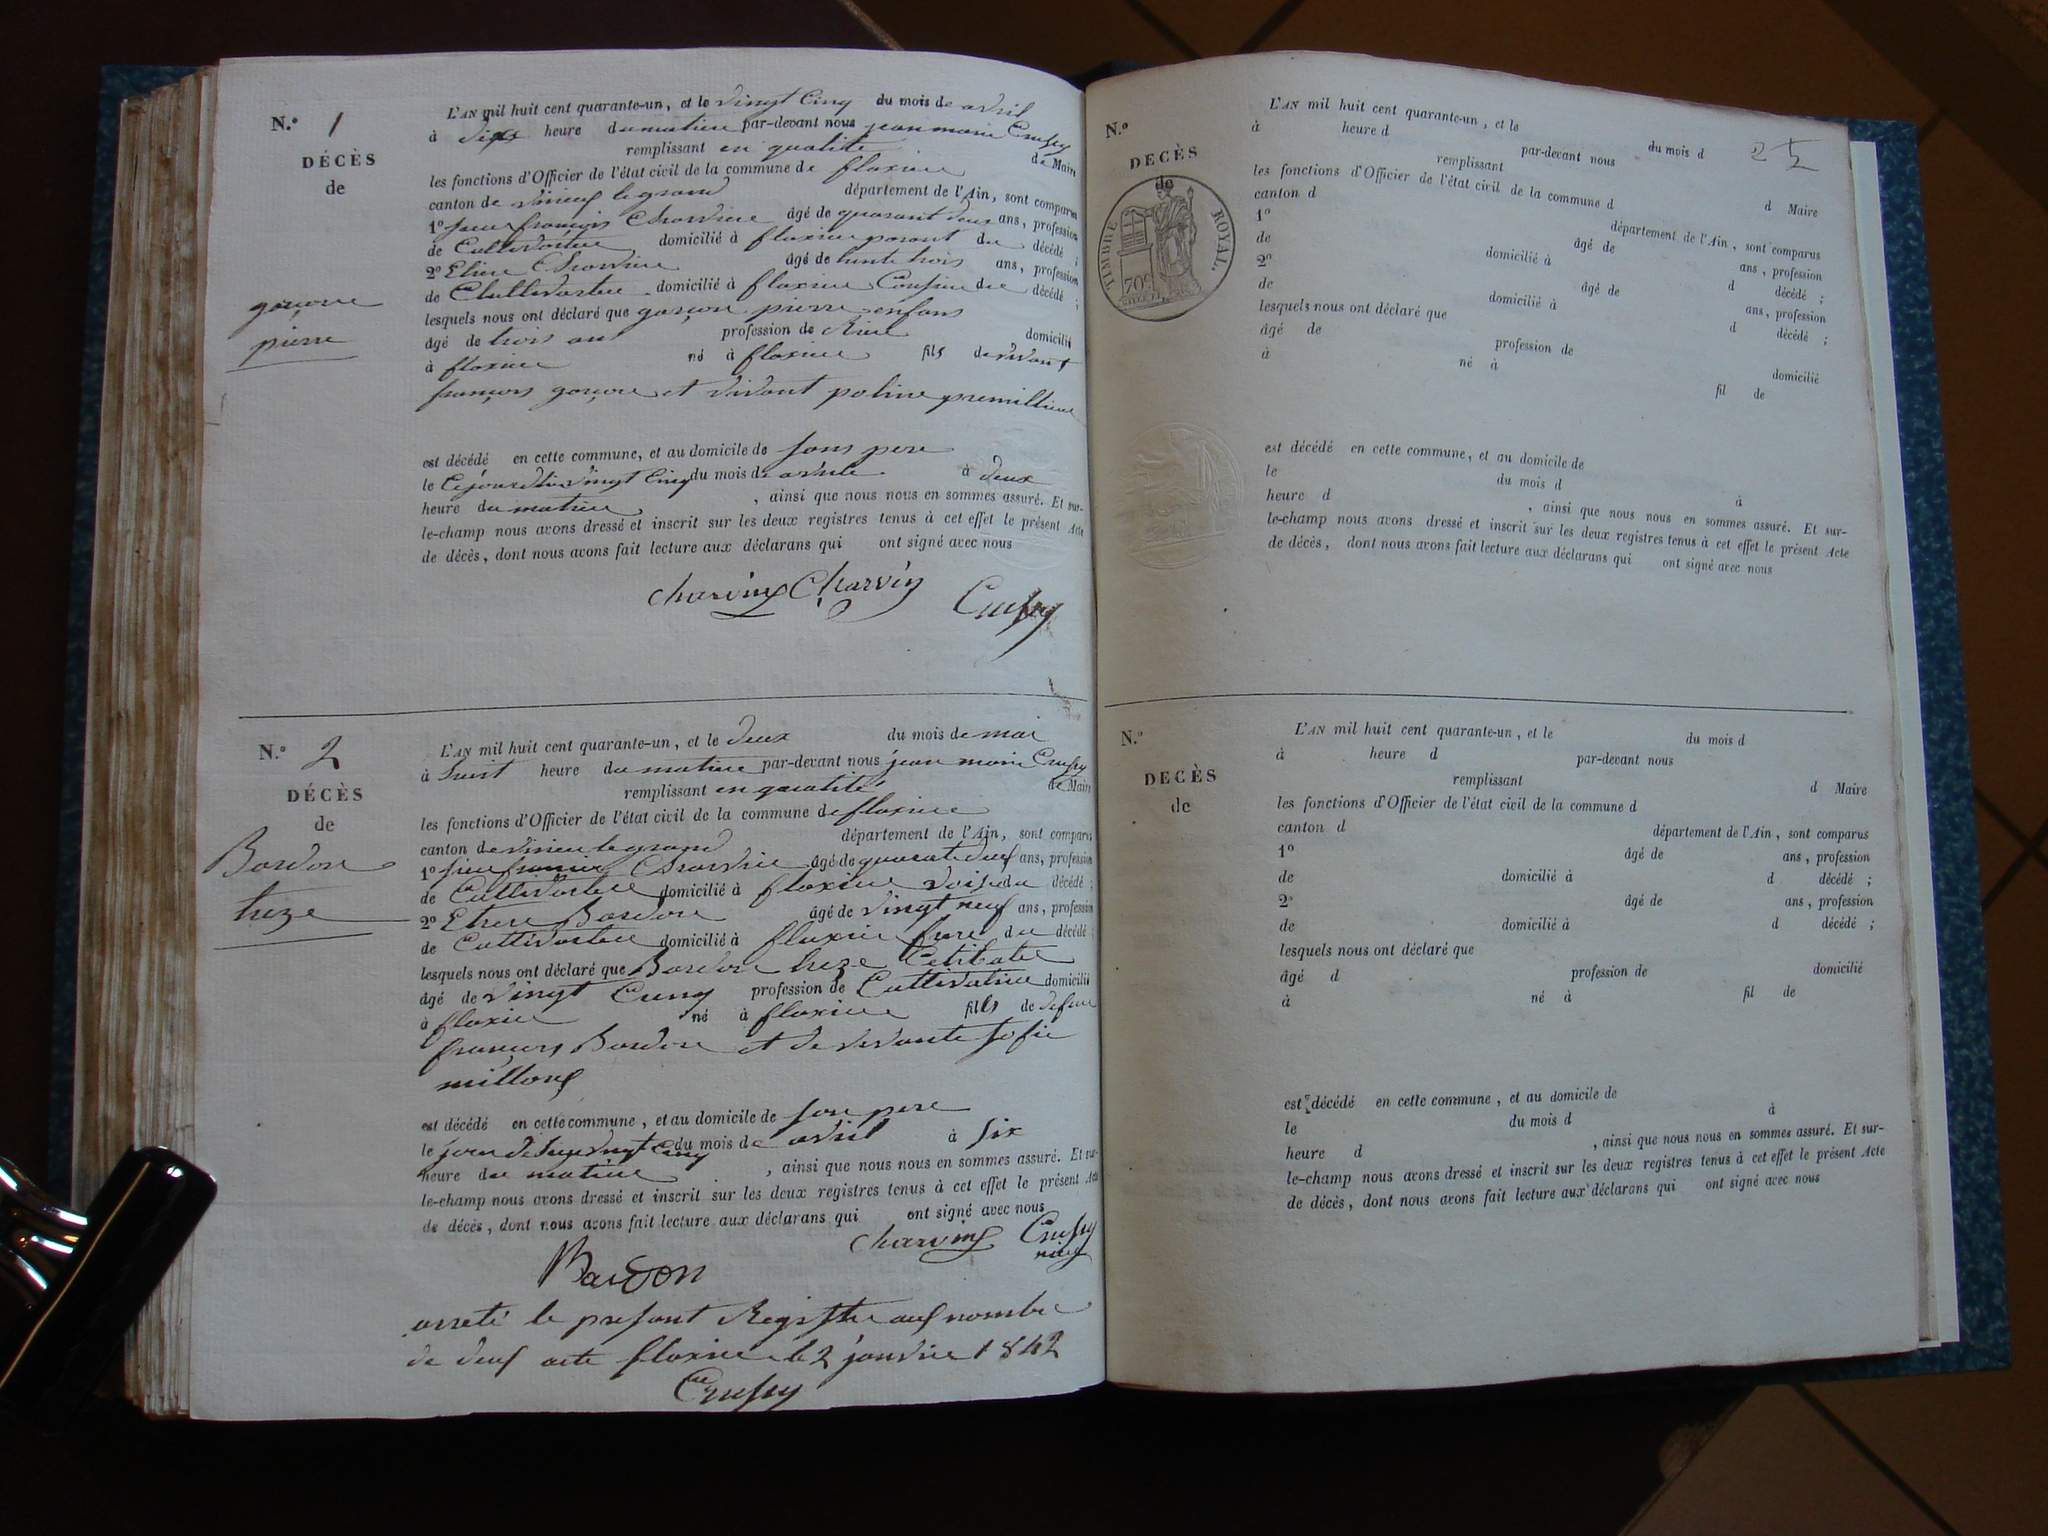 N.º 1
DÉCÈS
de
garçon
pierre
L'AN mil huit cent quarante-un, et le vingt Cinq du mois de avril
à dix heure du matin par-devant nous jean marie Crussy
remplissant en qualité de Maire
les fonctions d'Officier de l'état civil de la commune de flaxieu
canton de virieu le grand département de l'Ain, sont comparus
1º françois Charvin âgé de quarant deux ans, profession
de Cultivateur domicilié à flaxieu parant du décédé ;
2º Charvin âgé de trente trois ans, profession
de Cultivateur domicilié à flaxieu Cousin du décédé ;
lesquels nous ont déclaré que garçon pierre enfans
âgé de trois an profession de Rien domicilié
à flaxieu né à flaxieu fils de vivant
françois garçon et vivant poline premillieu
est décédé en cette commune, et au domicile de sons pere
le Cejourdhui vingt Cinq du mois de avrile à deux
heure du matin , ainsi que nous nous en sommes assuré. Et sur-
le-champ nous avons dressé et inscrit sur les deux registres tenus à cet effet le présent Acte
de décès, dont nous avons fait lecture aux déclarans qui ont signé avec nous
Charvin Charvin Crussy
N.º 2
DÉCÈS
de
Bardon
treze
L'AN mil huit cent quarante-un, et le deux du mois de mai
à huit heure du matin par-devant nous jean marie Crussy
remplissant en qualité de Maire
les fonctions d'Officier de l'état civil de la commune de flaxieu
canton de virieu le grand département de l'Ain, sont comparus
1º Charvin âgé de quarate deux ans, profession
de Cultivateur domicilié à flaxieu voisin du décédé ;
2º Bardon âgé de vingt neuf ans, profession
de Cultivateur domicilié à flaxieu frere du décédé ;
lesquels nous ont déclaré que Bardon treze Celibater
âgé de vingt Cinq profession de Cultivatrice domicilié
à flaxieu né à flaxieu fills de defun
françois Bardon et de vivante sofie
millons
est décédé en cette commune, et au domicile de son pere
le jour vingt Cinq du mois de avril à six
heure du matin , ainsi que nous nous en sommes assuré. Et sur-
le-champ nous avons dressé et inscrit sur les deux registres tenus à cet effet le présent Acte
de décès, dont nous avons fait lecture aux déclarans qui ont signé avec nous
Charvin Crussy
Bardon
arreté le present Registre aux nombre
de deux acte flaxieu le 2 janvie 1842
Crussy
25
N.º
DECÈS
de
TIMBRE ROYAL.
70c
L'AN mil huit cent quarante-un, et le du mois d
à heure d par-devant nous
remplissant d Maire
les fonctions d'Officier de l'état civil de la commune d
canton d département de l'Ain, sont comparus
1º âgé de ans, profession
de domicilié à d décédé ;
2º âgé de ans, profession
de domicilié à d décédé ;
lesquels nous ont déclaré que
âgé de profession de domicilié
à né à fil de
est décédé en cette commune, et au domicile de
le du mois d à
heure d , ainsi que nous nous en sommes assuré. Et sur-
le-champ nous avons dressé et inscrit sur les deux registres tenus à cet effet le présent Acte
de décès, dont nous avons fait lecture aux déclarans qui ont signé avec nous
N.º
DECÈS
de
L'AN mil huit cent quarante-un, et le du mois d
à heure d par-devant nous
remplissant d Maire
les fonctions d'Officier de l'état civil de la commune d
canton d département de l'Ain, sont comparus
1º âgé de ans, profession
de domicilié à d décédé ;
2º âgé de ans, profession
de domicilié à d décédé ;
lesquels nous ont déclaré que
âgé d profession de domicilié
à né à fil de
est décédé en cette commune, et au domicile de
le du mois d à
heure d , ainsi que nous nous en sommes assuré. Et sur-
le-champ nous avons dressé et inscrit sur les deux registres tenus à cet effet le présent Acte
de décès, dont nous avons fait lecture aux déclarans qui ont signé avec nous